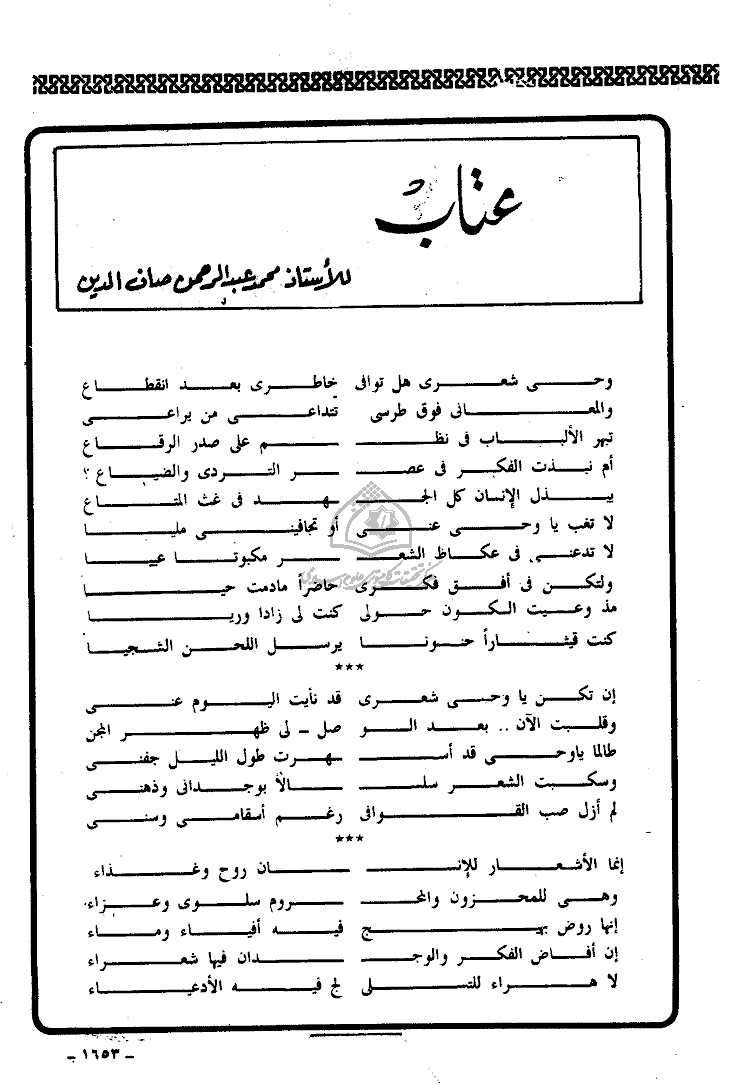 عتاب
للأستاذ محمد عبد الرحمن صان الدين
وحى شعرى هل توافى خاطرى بعد انقطاع
والمعانى فوق طرسى تتداعى من يراعى
تبهر الألباب فى نظم على صدر الرقاع
أم نبذت الفكر فى عصر التردى والضياع ؟
يبذل الإنسان كل الجهد فى غث المتاع
لا تغب يا وحى عنى أو تجافينى مليا
لا تدعنى فى عكاظ الشعر مكبوتا عييا
ولتكن فى أفق فكرى حاضراً مادمت حيا
مذ وعيت الكون حولى كنت لى زادا وريا
كنت قيثاراً حنونا يرسل اللحن الشجيا
***
إن تكن يا وحى شعرى قد نأيت اليوم عنى
وقلبت الآن .. بعد الو صل ـ لى ظهر المجن
طالما ياوحى قد أسهرت طول الليل جفنى
وسكبت الشعر سلسالاً بوجدانى وذهنى
لم أزل صب القوافى رغم أسقامى وسنى
***
إنما الأشعار للإنسان روح وغذاء
وهى للمحزون والمحروم سلوى وعزاء
إنها روض بهيج فيه أفياء وماء
إن أفاض الفكر والوجدان فيها شعراء
لا هراء للتسلى لج فيه الأدعياء
ـ ١٦٥٣ ـ